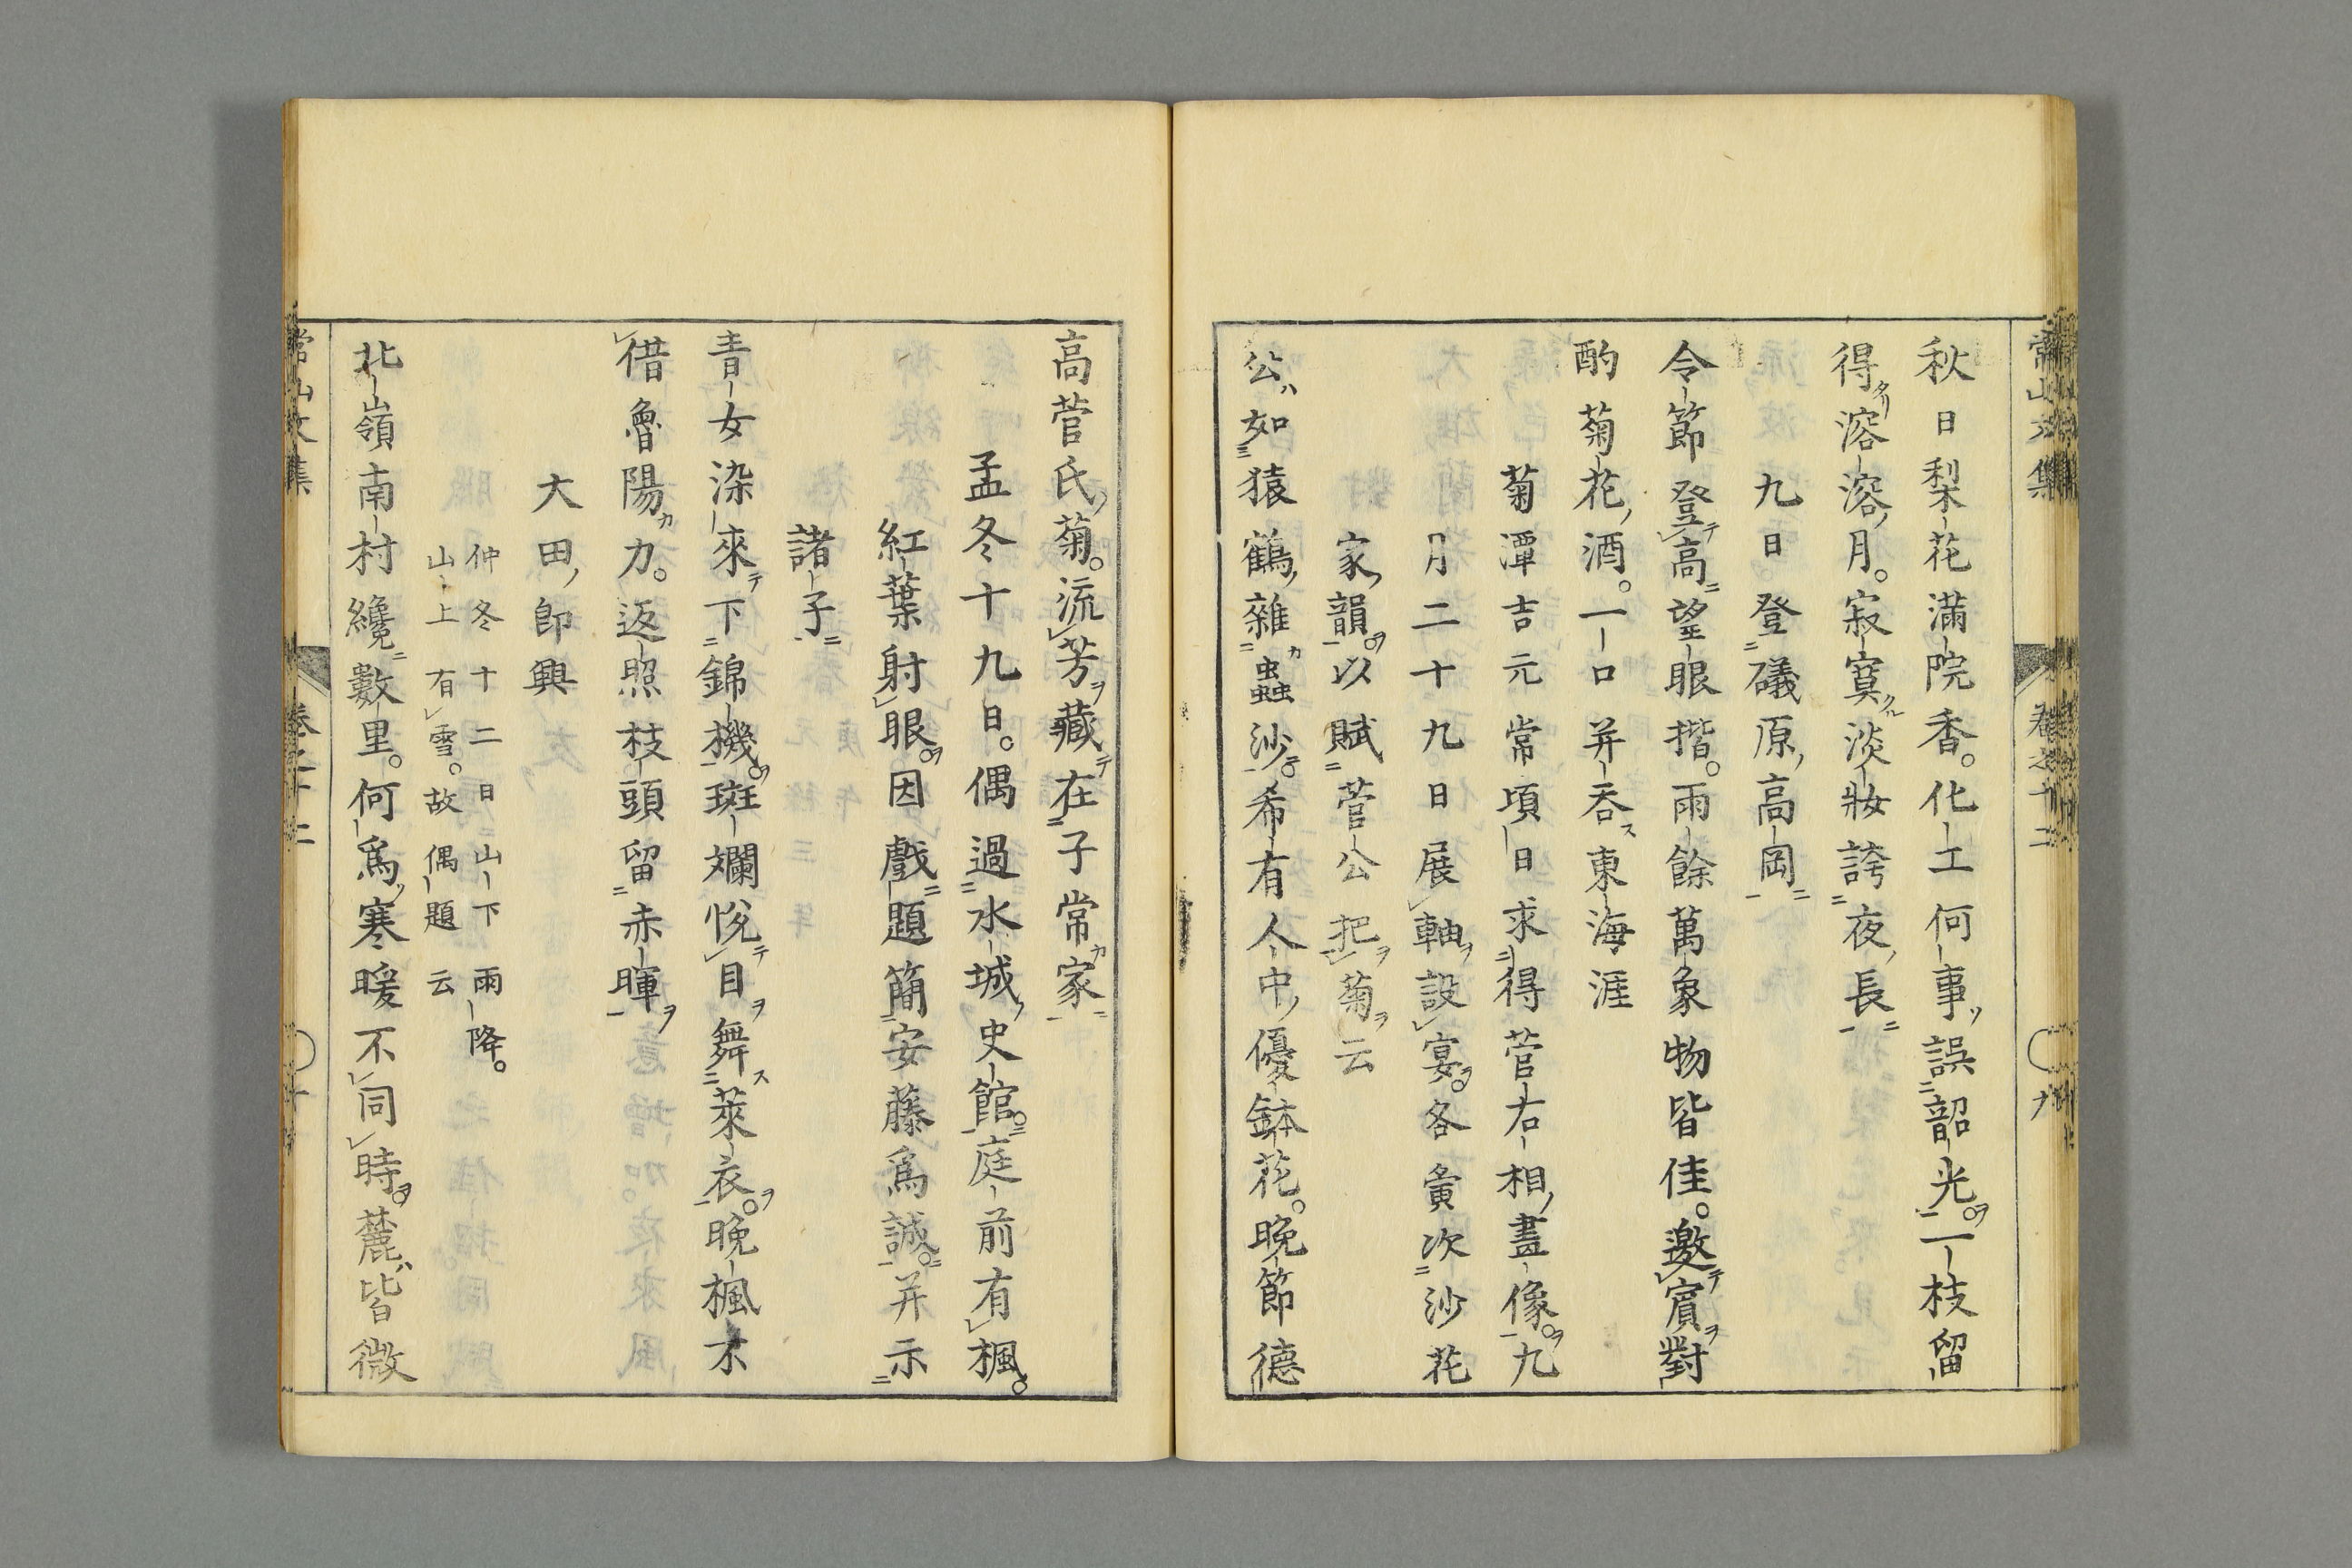 常山文集 卷之十二 九
秋日梨花滿院香。化工何事誤韶光。一枝留
得溶溶月。寂寞淡妝誇夜長
九日登礒原高岡
令節登高望眼揩。雨餘萬象物皆佳。邀賓對
酌菊花酒。一口并吞東海涯
菊潭吉元常頃日求得菅右相畫像。九
月二十九日展軸設宴。各賡次沙花
家韻。以賦菅公把菊云
公如猿鶴雜蟲沙。希有人中優鉢花。晚節德
高菅氏菊。流芳藏在子常家
孟冬十九日。偶過水城史館。庭前有楓。
紅葉射眼。因戲題簡安藤爲誠。并示
諸子
青女染來下錦機。斑斕悅目舞萊衣。晚楓不
借魯陽力。返照枝頭留赤暉
大田即興
仲冬十二日山下雨降。
山上有雪。故偶題云
北嶺南村纔數里。何爲寒暖不同時。麓皆微
常山文集 卷之十二 十